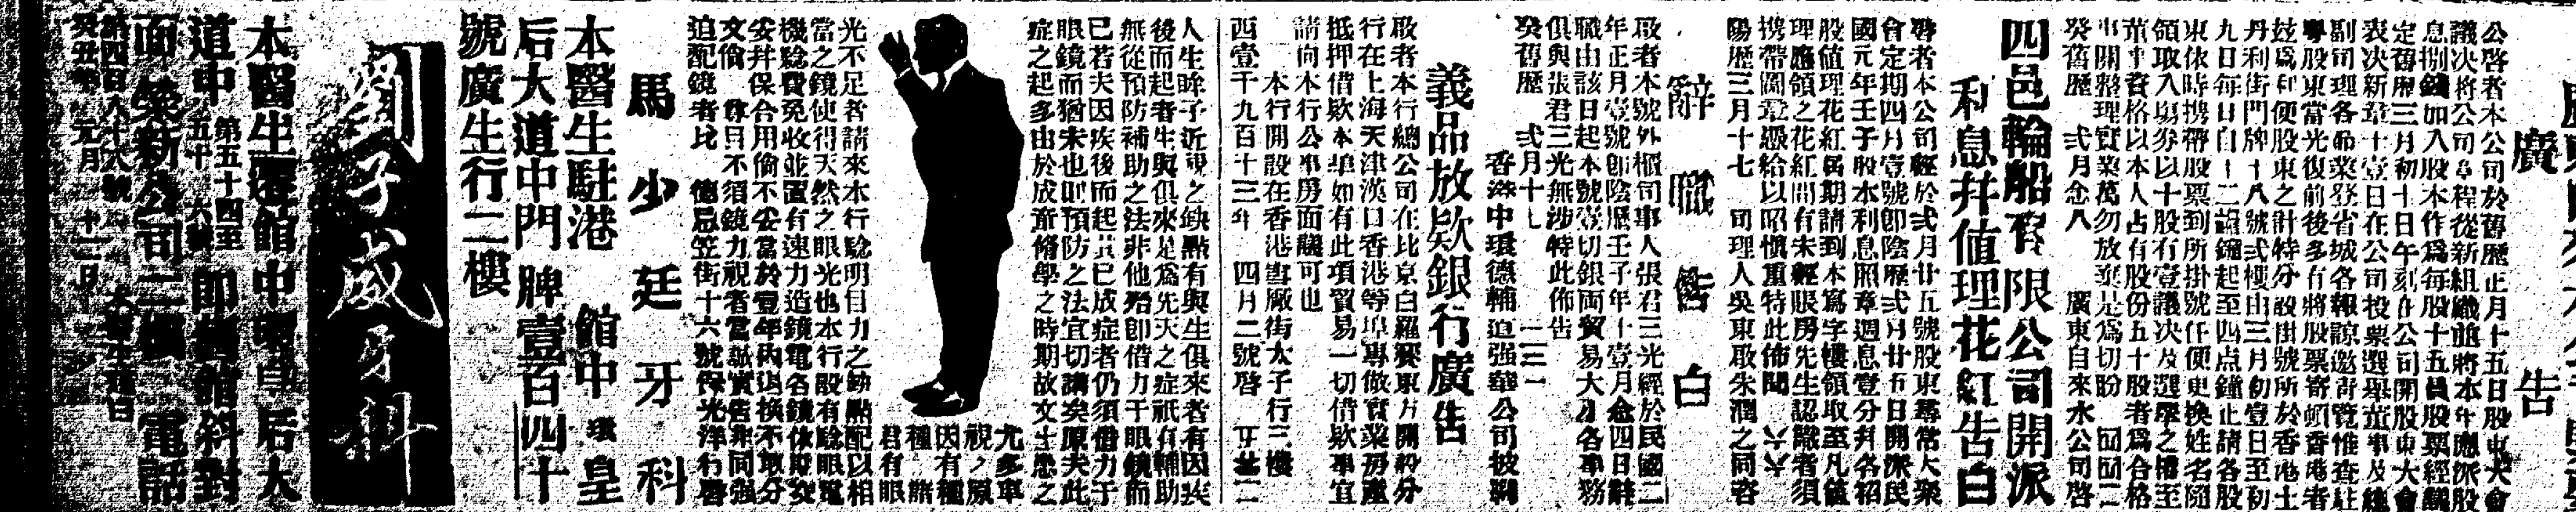 廣
告
公啓者本公司於舊歷正月十五日股東大會
議決將公司章程從新組織並將本年應派股
息捌錢加入股本作爲每股十五員股票經議
定舊歷三月初十日午刻在公司開股東大會
表決新章十壹日在公司投票選舉董事及總
副司理各節業登省城各報諒邀青覽惟查駐
粵股東當光復前後多有將股票寄頓香港者
玆爲利便股東之計特分設掛號所於香港士
丹利街門牌十八號弍樓由三月初壹日至初
九日每日自十二點鐘起至四点鐘止請各股
東依時携帶股票到所掛號任便更換姓名隨
領取入塲券以十股有壹議決及選舉之權至
董事資格以本人占有股份五十股者爲合格
事關整理實業萬勿放棄是爲切盼
癸舊歷 弍月念八 廣東自來水公司啓
四邑輪船有限公司開派
利息幷值理花紅告白
啓者本公司經於弍月廿五號股東尋常大聚
會定期四月壹號卽陰歷弍月廿五日開派民
國元年壬子股本利息照章週息壹分幷各招
股值理花紅屆期請到本寫字樓領取至凡值
理應領之花紅間有未經賬房先生認識者須
携帶圖章憑給以昭愼重特此佈聞
陽歷三月十七 司理人吳東啟朱潤之同啓
辭職告白
啟者本號外櫃司事人張君三光經於民國二
年正月壹號卽陰歷壬子年十壹月念四日辭
職由該日起本號壹切銀両貿易大小各事務
俱與張君三光無涉特此佈告
癸舊歷 弍月十九
香港中環德輔道强華公司披露
義品放欵銀行廣告
啟者本行總公司在比京白羅梭東方開設分
行在上海天津漢口香港等埠專做實業房產
抵押借欵本埠如有此項貿易一切借欵事宜
請向本行公事房面議可也
本行開設在香港雪廠街太子行三樓
西壹千九百十三年 四月二號啓
人生眸子近視之缺點有與生俱來者有因疾
後而起者生與俱來是爲先天之症祇有輔助
無從預防補助之法非他殆卽借力于眼鏡而
已若夫因疾後而起其已成症者仍須借力于
眼鏡而猶未也則預防之法宜切講矣原夫此
症之起多由於成童脩學之時期故文士患之
尤多車
視夕原
因有種
種 諸
君有眼
光不足者請來本行騐明目力之缺點配以相
當之鏡使得天然之眼光也本行設有騐眼電
機騐費免收並置有速力造鏡電各鏡倘欵突
妥幷保合用倘不妥當於壹年內退換不取分
文倘 尊目不須鏡力視者當誠實告非同强
迫配鏡者比 德忌笠街十六號得光洋行啓
馬少廷牙科
本醫生駐港 館中環皇
后大道中門牌壹百四十
號廣生行二樓
劉子威牙科
本醫生遷館中環皇后大
道中 第五十四至五十六號 卽舊館斜對
面榮新公司二樓 電話
第四百八十六號
癸丑年 元月 十一日 本醫生謹白